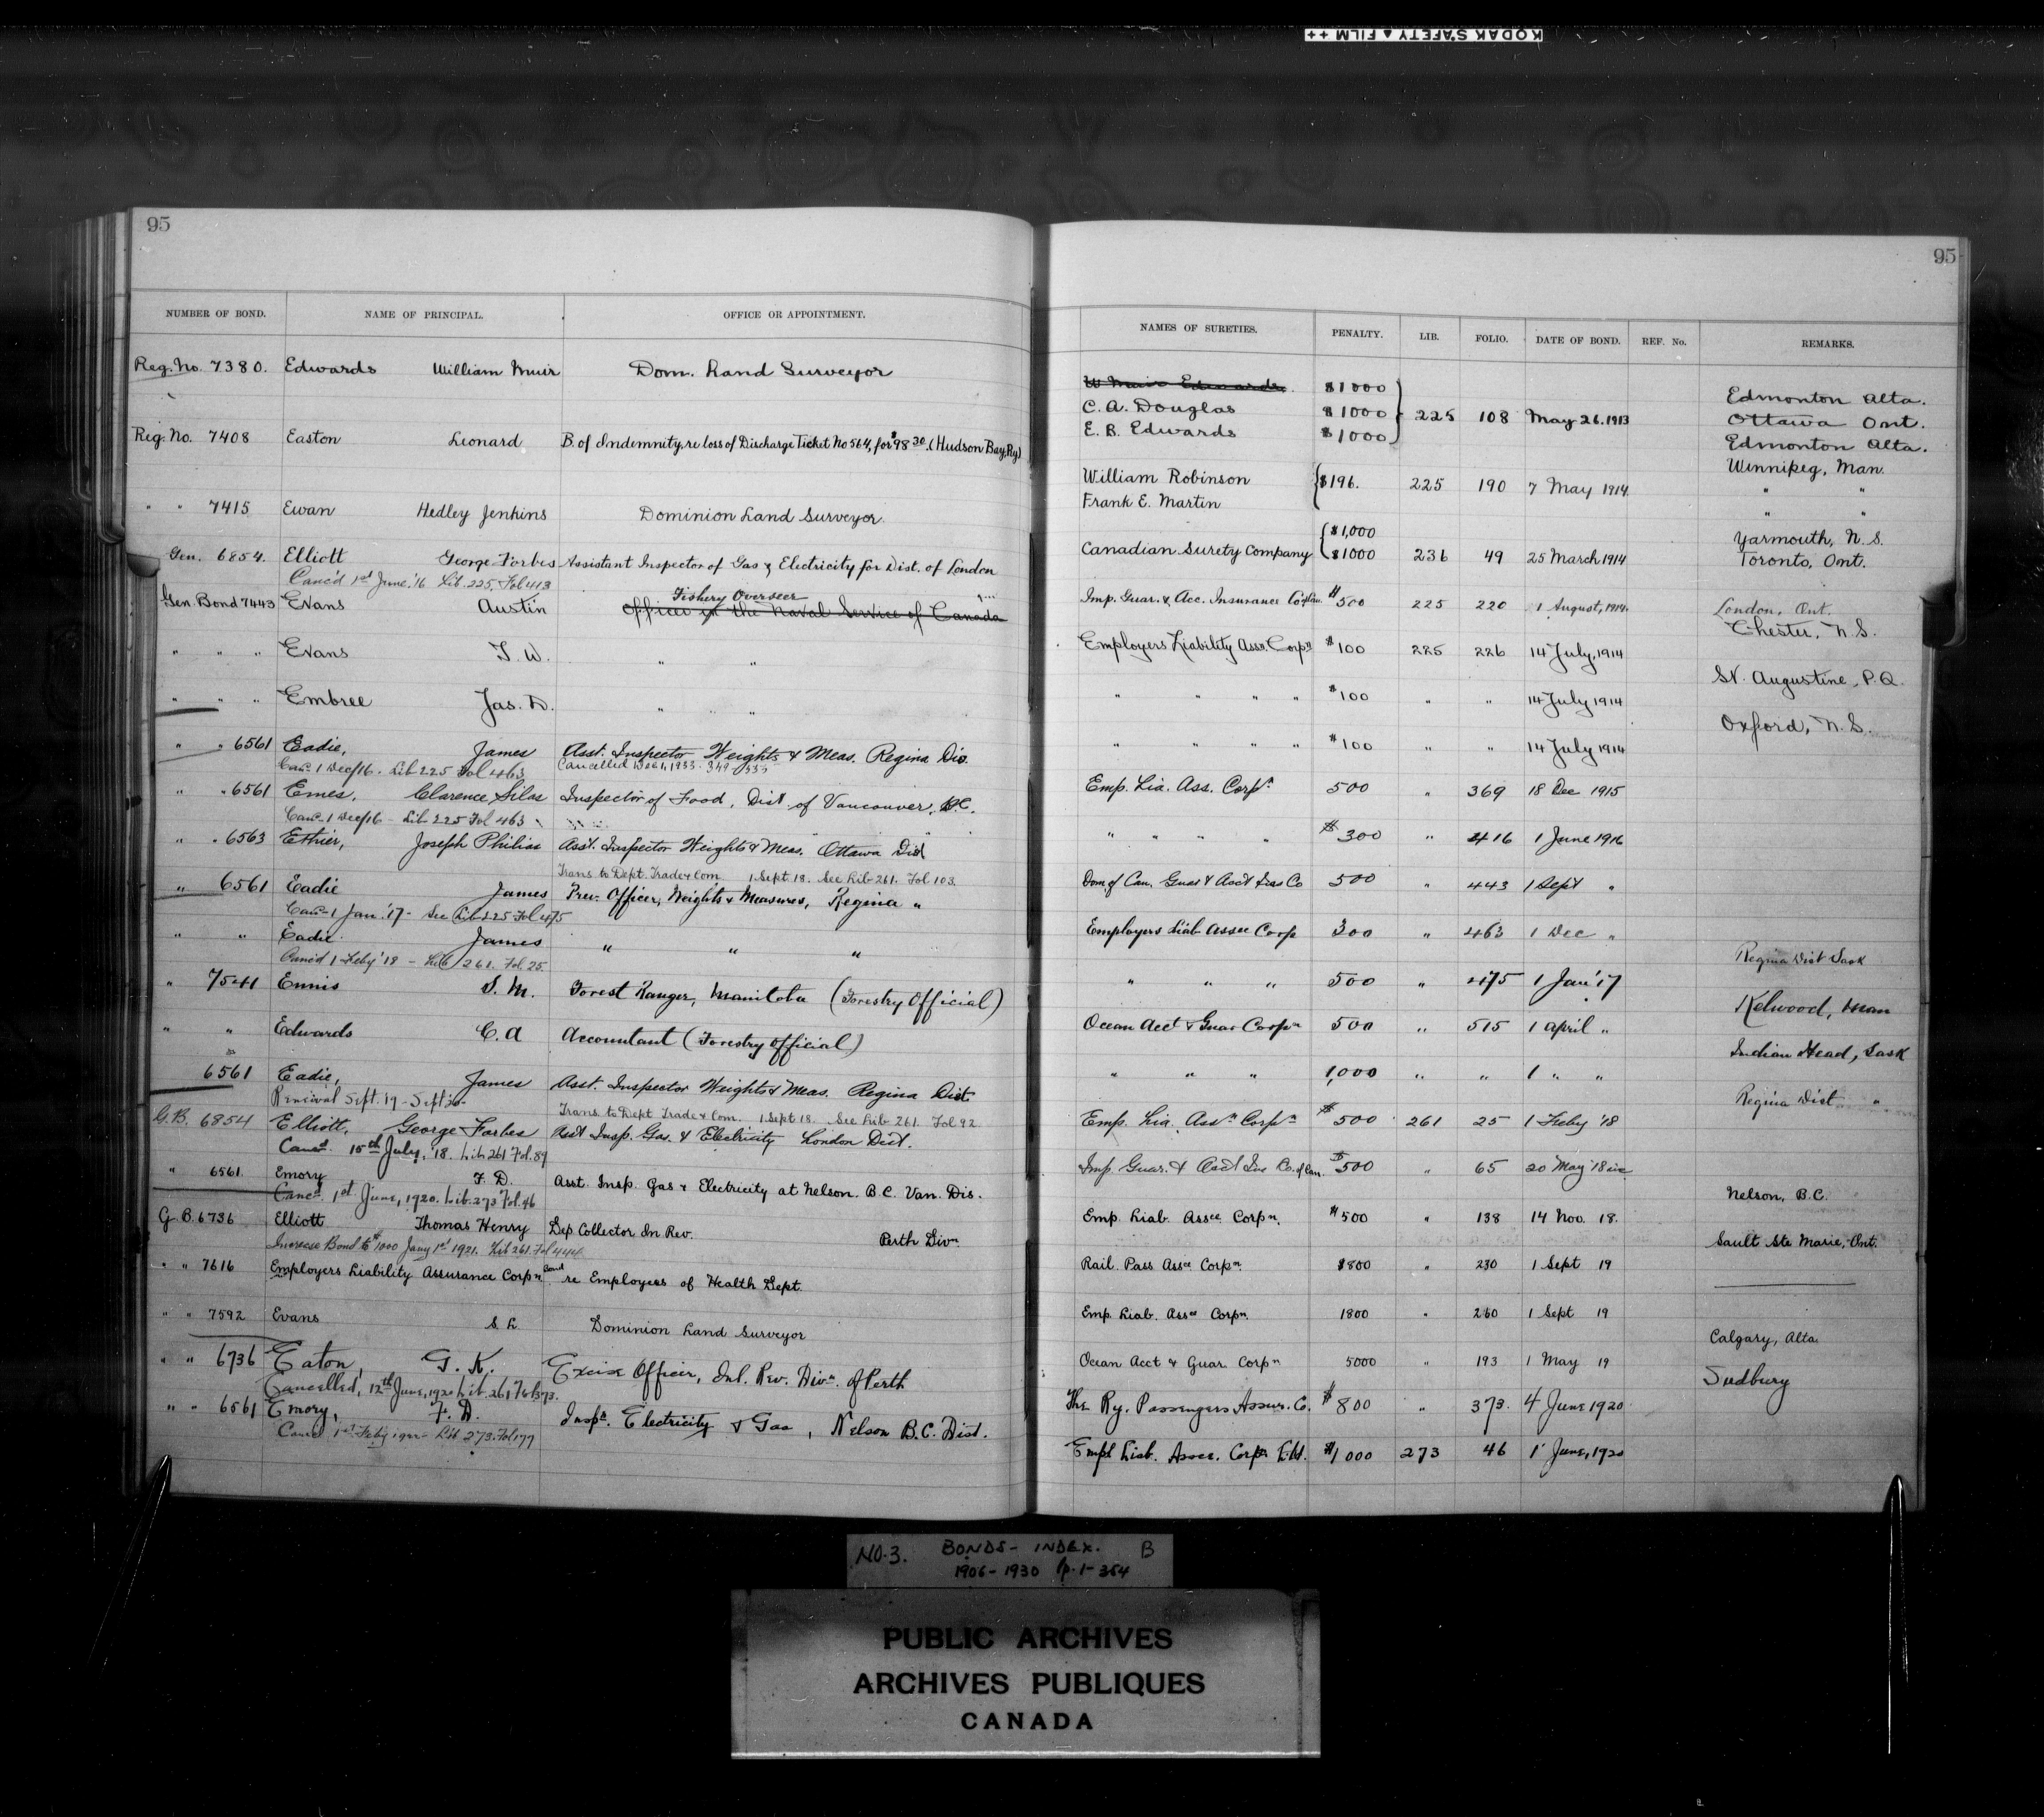 KODAK SAFETY ▲ FILM ++
95
NUMBER OF BOND. NAME OF PRINCIPAL. OFFICE OR APPOINTMENT.
Reg. No. 7380. Edwards William Muir Dom. Land Surveyor
Reg. No. 7408 Easton Leonard B. of Indemnity, re loss of Discharge Ticket No 564, for $98 30. (Hudson Bay Ry)
" " 7415 Ewan Hedley Jenkins Dominion Land Surveyor.
Gen. 6854. Elliott George Forbes Assistant Inspector of Gas & Electricity for Dist. of London
Canc'd 1st June '16 Lib. 225, Fol 413
Fishery Overseer
Gen. Bond 7443 Evans Austin Officer in the Naval Service of Canada
" " " Evans T. W. " "
" " " Embree Jas. D. " " "
" " 6561 Eadie, James Asst. Inspector Weights & Meas. Regina Dis.
Canc. 1 Dec/16. Lib 225 Fol 463 Cancelled Dec 1, 1933. 349 333
" " 6561 Emes, Clarence Silas Inspector of Food, Dist of Vancouver, B.C.
Canc. 1 Dec/16 - Lib 225 Fol 463
" " 6563 Ethier, Joseph Philias Asst. Inspector Weights & Meas. Ottawa Dist
Trans to Dept. Trade & Com. 1 Sept 18. See Lib 261. Fol 103.
" 6561 Eadie James Prev. Officer, Weights & Measures, Regina "
Canc. 1 Jan. '17 - See Lib 225 Fol 475
" " Eadie James " " "
Canc'd 1 Feby '18 - Lib 261. Fol. 25.
" 7541 Ennis S. M. Forest Ranger, Manitoba (Forestry Official)
" " Edwards C. A Accountant (Forestry Official)
6561 Eadie, James Asst. Inspector Weights & Meas. Regina Dist
Renewal Sept. 19 - Sept 20-
Trans. to Dept Trade & Com. 1 Sept 18. See Lib 261. Fol 92.
G.B. 6854 Elliott, George Forbes Asst Insp. Gas. & Electricity London Dist.
Canc'd 15th July, '18. Lib 261 Fol. 89
" 6561 Emory F. D. Asst. Insp. Gas & Electricity at Nelson. B.C. Van. Dis.
Canc'd 1st June, 1920. Lib. 273 Fol. 46
G B. 6736 Elliott Thomas Henry Dep Collector In Rev. Perth Divn.
Increase Bond to $1000 Jany 1st 1921. Lib 261. Fol 444
" " 7616 Employers Liability Assurance Corpn. Bond re Employees of Health Dept.
" " 7592 Evans S. L. Dominion Land Surveyor
" " 6736 Eaton, G. K. Excise Officer, Inl. Rev. Divn. of Perth
Cancelled, 12th June, 1920 Lib. 261 Fol 373.
" " 6561 Emory, F. D. Inspr. Electricity & Gas, Nelson B.C. Dist.
Canc'd 1st Feby 1922 - Lib 273. Fol 179
95
NAMES OF SURETIES. PENALTY. LIB. FOLIO. DATE OF BOND. REF. No. REMARKS.
W Muir Edwards. $1000 Edmonton Alta.
C. A. Douglas $1000 225 108 May 26. 1913 Ottawa Ont.
E. B. Edwards $1000 Edmonton Alta.
Winnipeg, Man.
William Robinson $196. 225 190 7 May 1914. " "
Frank E. Martin " "
$1,000 Yarmouth, N. S.
Canadian Surety Company $1000 236 49 25 March 1914 Toronto, Ont.
Imp. Guar. & Acc. Insurance Co. of Can. $500 225 220 1 August, 1914. London, Ont.
Chester, N. S.
Employers Liability Assn. Corpn $100 225 226 14 July, 1914
St. Augustine, P. Q.
" " " " $100 " " 14 July 1914
Oxford, N. S.
" " " " $100 " " 14 July 1914
Emp. Lia. Ass. Corpn. 500 " 369 18 Dec 1915
" " " " $300 " 416 1 June 1916
Dom. of Can. Guar & Acct Ins Co 500 " 443 1 Sept "
Employers Liab Assce Corp 300 " 463 1 Dec "
Regina Dist Sask
" " " 500 " 475 1 Jan '17
Kelwood, Man
Ocean Acct & Guar Corpn 500 " 515 1 April "
Indian Head, Sask
" " " 1,000 " " 1 " "
Regina Dist "
Emp. Lia. Assn Corpn $500 261 25 1 Feby '18
Imp. Guar. & Acct Ins Co. of Can. $500 " 65 20 May '18
Nelson, B.C.
Emp. Liab. Assce Corpn. $500 " 138 14 Nov. 18.
Sault Ste Marie, Ont.
Rail. Pass Assce Corpn. $800 " 230 1 Sept 19
Emp. Liab. Assce Corpn. 1800 " 260 1 Sept 19
Calgary, Alta.
Ocean Acct & Guar. Corpn 5000 " 193 1 May 19
Sudbury
The Ry. Passengers Assur. Co. $800 " 373. 4 June 1920
Empl Liab. Assce. Corpn Ltd. $1000 273 46 1 June, 1920
NO. 3. BONDS - INDEX. B
1906 - 1930 p. 1 - 364
PUBLIC ARCHIVES
ARCHIVES PUBLIQUES
CANADA